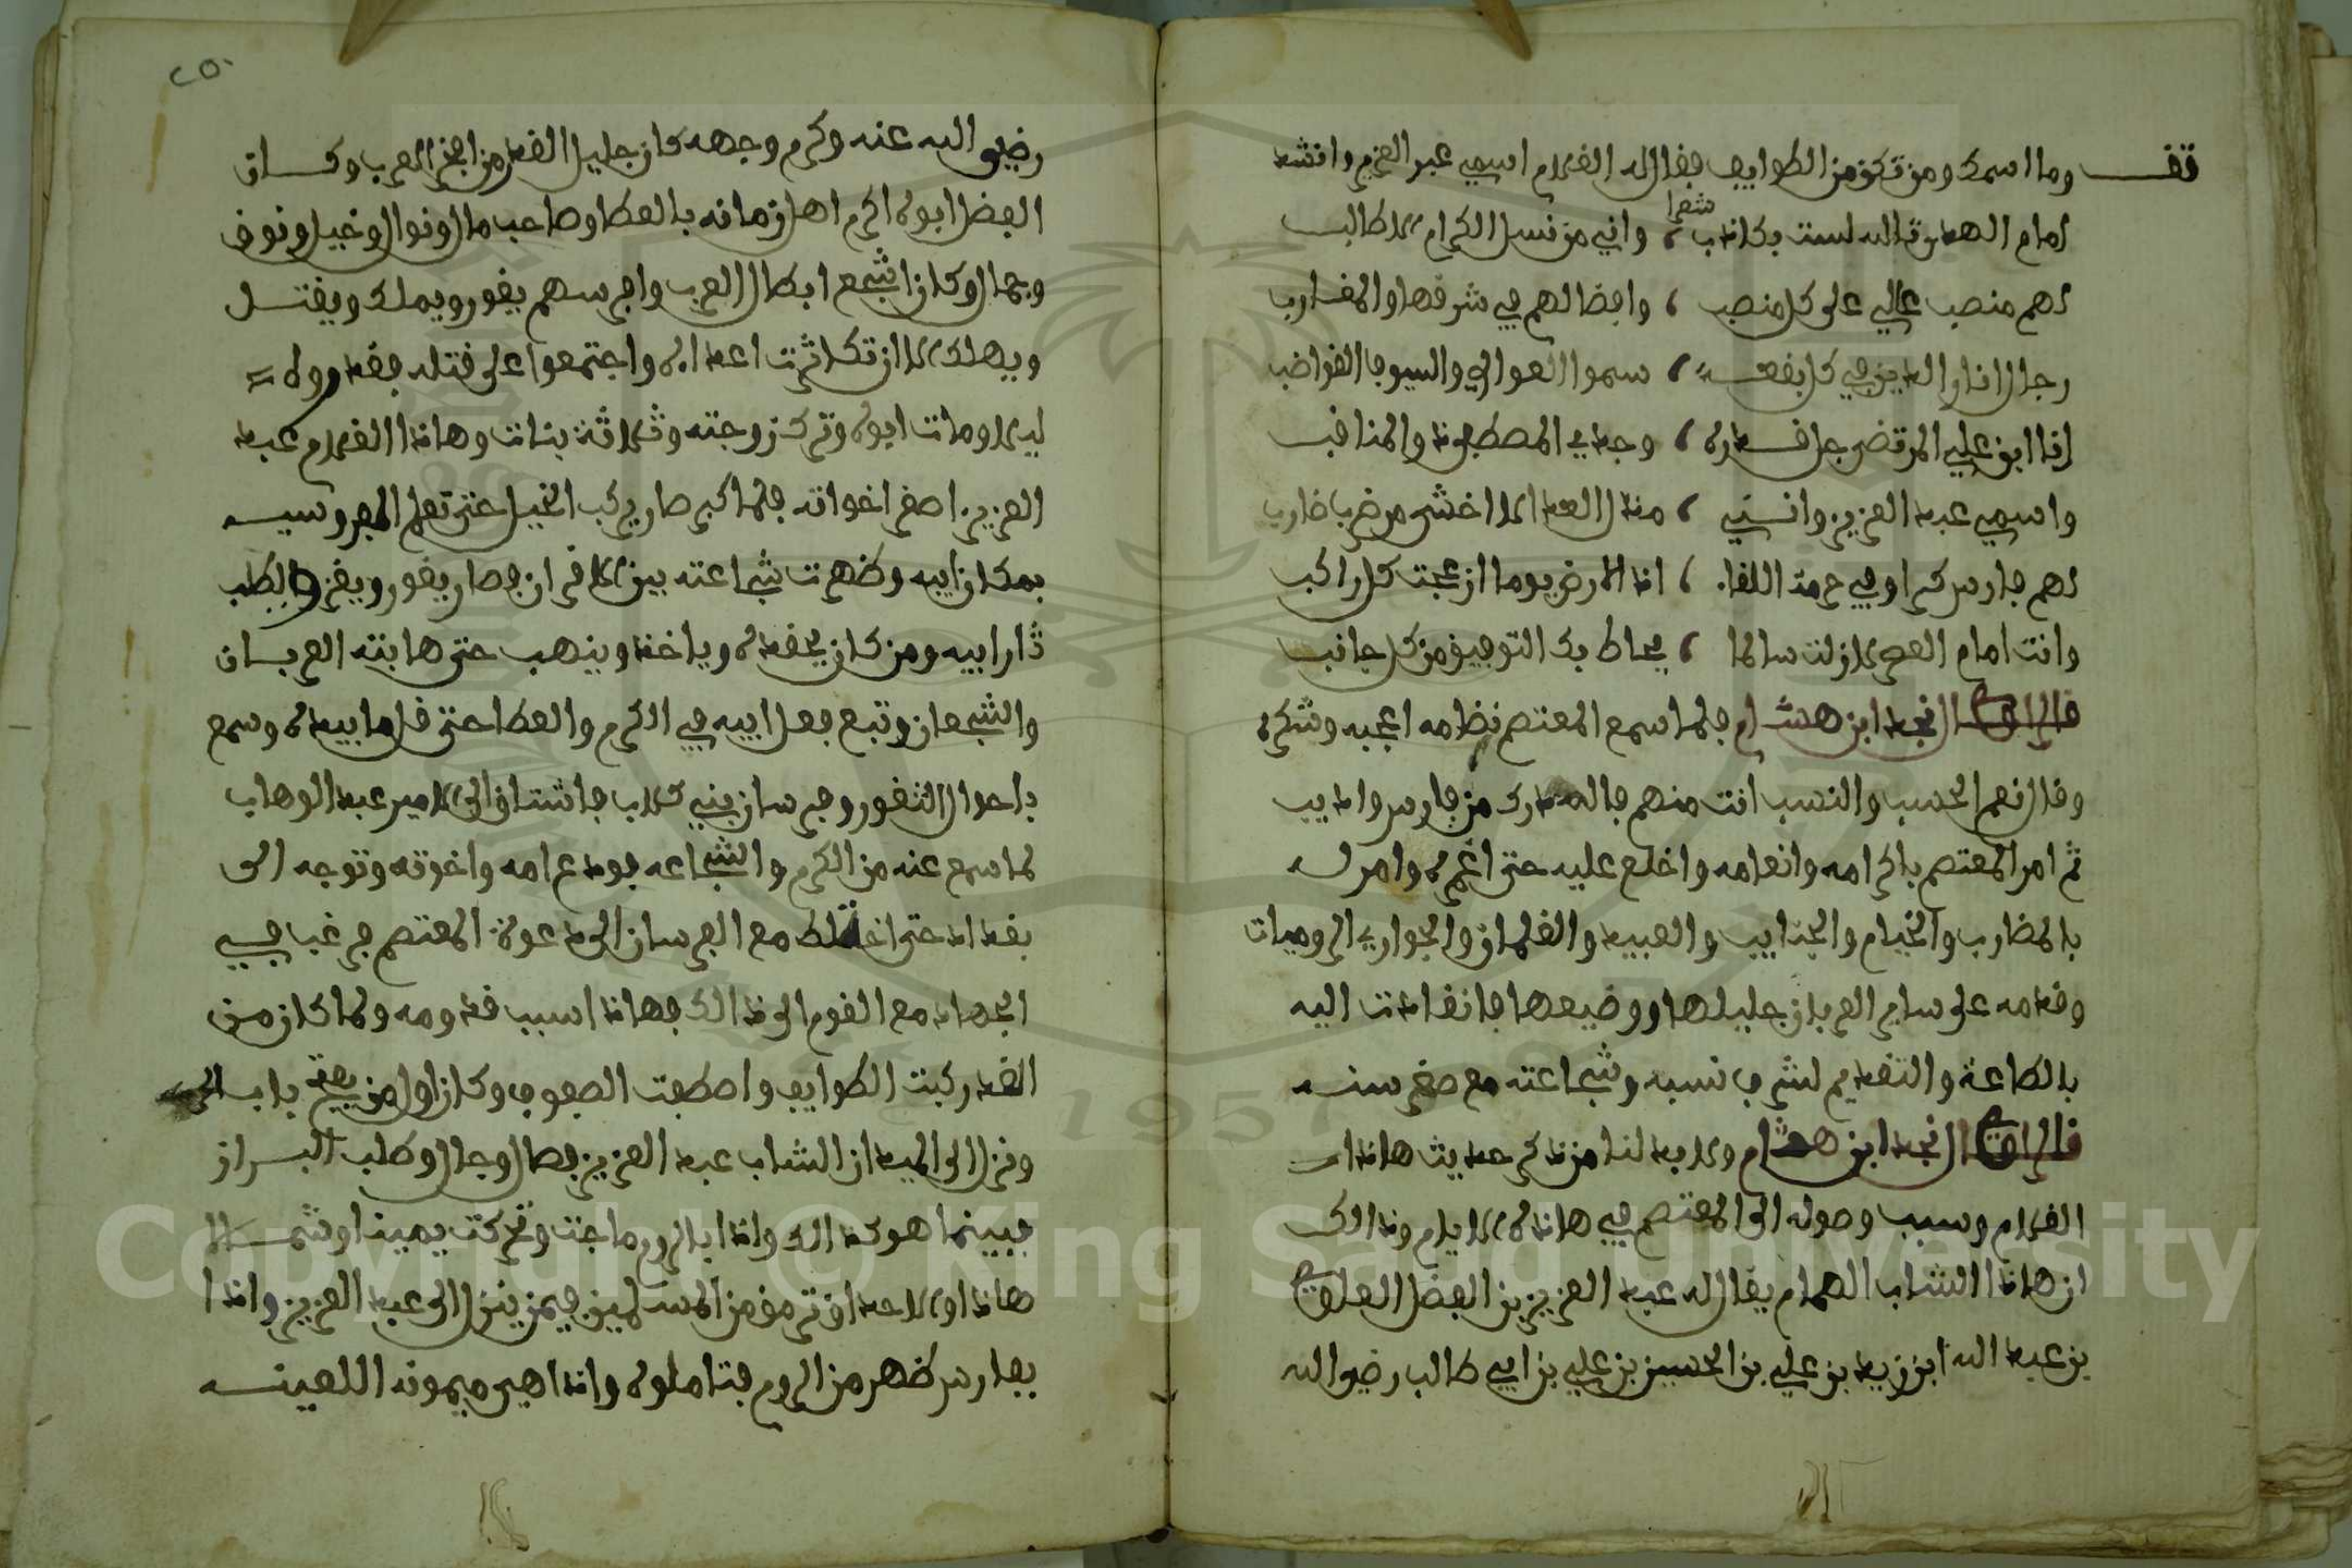 قف وما اسمك ومن تكون من الطوايف فقال له الغلام اسمي عبد العزيز وانشد
شعرا
امام الهدى تالله لست بكاذب ، واني من نسل الكرام الاطالب
لهم منصب عالي على كل منصب ، وافضالهم في شرقها والمغارب
رجال اناروا الدين في كل بقعة ، سموا العوالي والسيوف القواضب
انا ابن علي المرتضى جل قدره ، وجدي المصطفى والمناقب
واسمي عبد العزيز وانني ، مذل العدا لا اخشى من ضارب
لهم فارس كرا وفي حومة اللقا ، اذا الارض يوما ازعجت كل راكب
وانت امام العصر لازلت سالما ، يحاط بك التوفيق من كل جانب
قال الراوي نجد ابن هشام فلما سمع المعتصم نظامه اعجبه وشكره
وقال نعم الحسب والنسب انت منهم فالله درك من فارس واديب
ثم امر المعتصم باكرامه وانعامه واخلع عليه حتى اغمره وامر له
بالمضارب والخيام والجنايب والعبيد والغلمان والجواري الروميات
وقدمه على ساير العربان جليلها ووضيعها فانقادت اليه
بالطاعة والتقديم لشرف نسبه وشجاعته مع صغر سنه
قال الراوي نجد ابن هشام ولا بد لنا من ذكر حديث هاذا
الغلام وسبب وصوله الى المعتصم في هاذه الايام وذالك
ان هاذا الشاب الهمام يقال له عبد العزيز بن الفضل العلوي
بن عبد الله ابن زيد بن علي بن الحسين بن علي بن ابي طالب رضي الله
٢٥٠
رضي الله عنه وكرم وجهه كان جليل القدر من افخر العرب وكان
الفضل ابوه اكرم اهل زمانه بالعطا وصاحب مال ونوال وخيل ونوق
وجمال وكان اشجع ابطال العرب وافرسهم يغور ويملك ويقتل
ويهلك الا ان تكاثرت اعداه واجتمعوا على قتله فقدروله
ليلا ومات ابوه وترك زوجته وثلاثة بنات وهاذا الغلام عبد
العزيز اصغر اخواته فلما كبر صار يركب الخيل حتى تعلم الفروسيه
بمكان ابيه وظهرت شجاعته بين الاقران فصار يغور ويغزو ويطلب
ثار ابيه ومن كان يحقده وياخذ وينهب حتى هابته العربان
والشجعان وتبع فعل ابيه في الكرم والعطا حتى قل ما بيده وسمع
باحوال الثغور وفرسان بني كلاب فاشتاق الى الامير عبد الوهاب
لما سمع عنه من الكرم والشجاعه فودع امه واخوته وتوجه الى
بغداد حتى اختلط مع الفرسان الى دعوة المعتصم فرغب في
الجهاد مع القوم الى ذالك فهاذا سبب قدومه ولما كان من
الغد ركبت الطوايف واصطفت الصفوف وكان اول من يفتح باب الحرب
ونزل الى الميدان الشاب عبد العزيز فصال وجال وطلب البراز
فبينما هو كذالك واذا بالروم ماجت وتحركت يمينا وشمالا
هاذا ولا احد ان ترمق من المسلمين فيمن ينزل الى عبد العزيز واذا
بفارس ظهر من الروم فتاملوه واذا هي ميمونه اللعينه